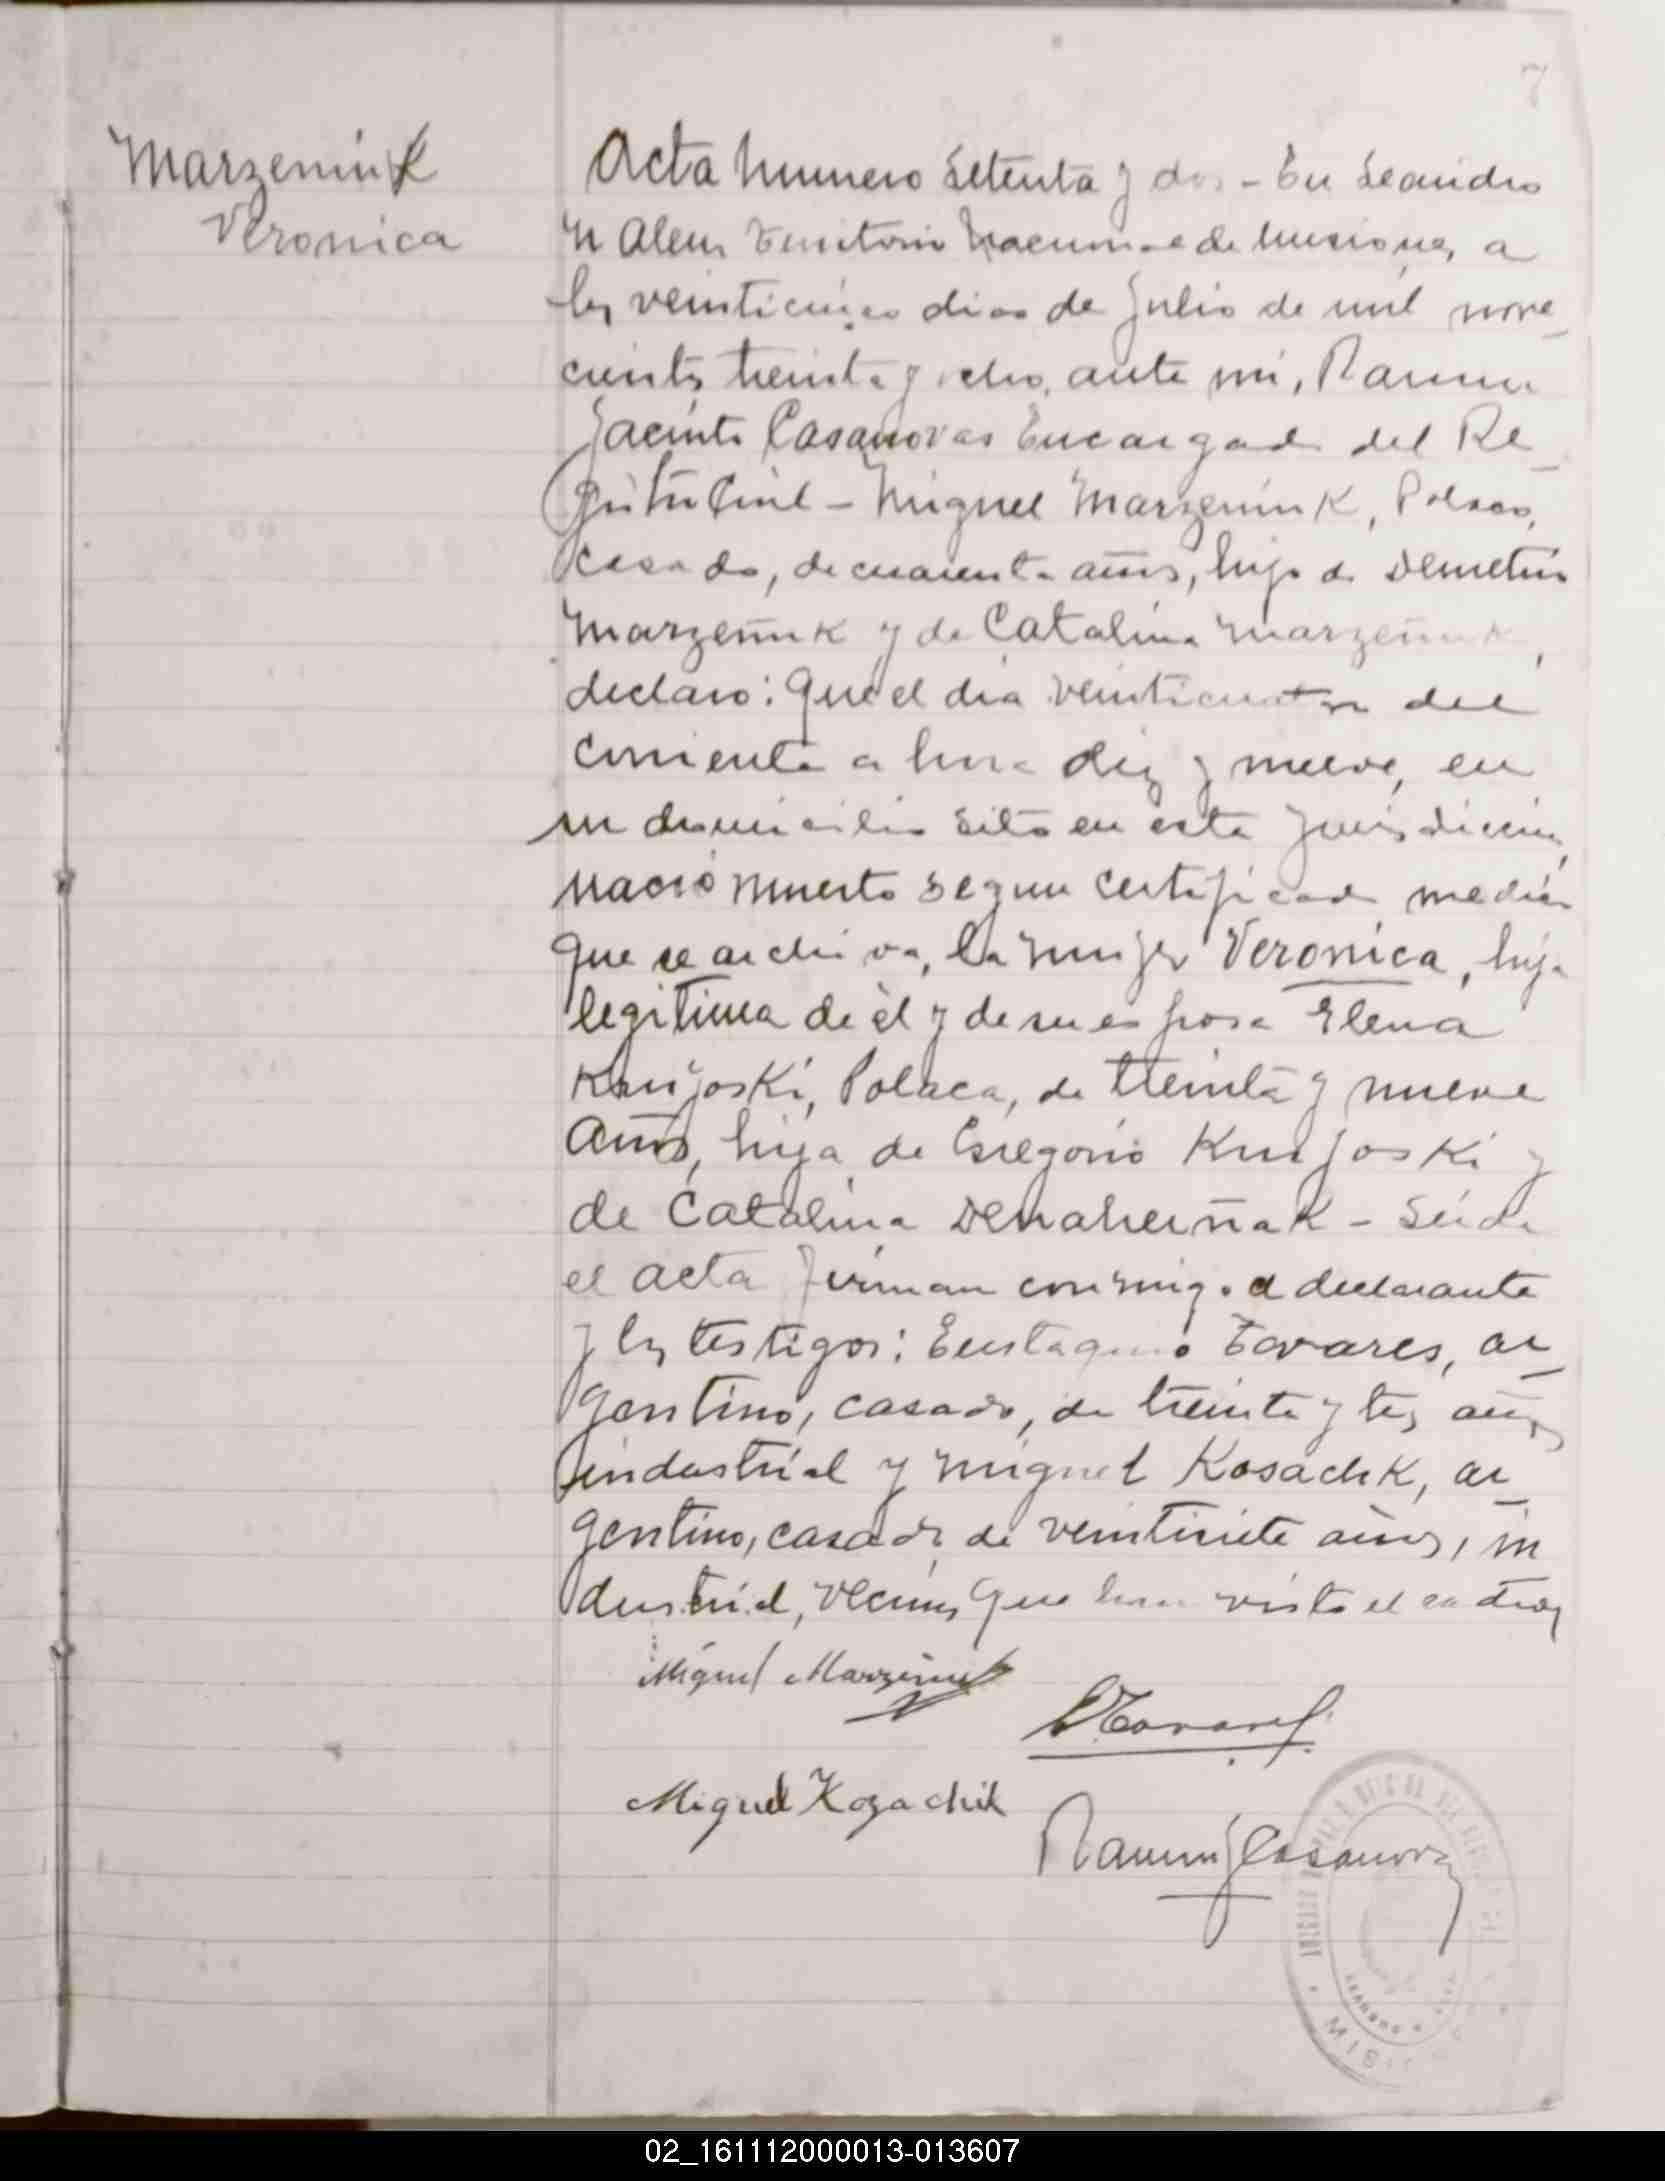 7
Marzeniuk
Veronica
Acta Numero Setenta y dos - En Leandro
N Alem Territorio Nacional de Misiones, a
los veinticinco dias de Julio de mil nove_
cientos treinta y ocho, ante mi, Ramon
Jacinto Casanovas Encargado del Re_
gistro Civil - Miguel Marzeniuk, Polaco,
casado, de cuarenta años, hijo de Demetrio
Marzeniuk y de Catalina Marzeniuk,
declaro: Que el dia veinticuatro del
corriente a hora diez y nueve, en
su domicilio sito en esta jurisdiccion,
nació muerto segun certificado medico
que se archiva, la mujer Veronica, hija
legitima de él y de su esposa Elena
Krujoski, Polaca, de treinta y nueve
años, hija de Gregorio Krujoski y
de Catalina - Leida
el acta firman conmigo el declarante
y los testigos: Eustaquio Tavares, ar_
gentino, casado, de treinta y tres años,
industrial y Miguel Kosachk, ar_
gentino, casado, de veintisiete años, in
dustrial, vecinos que han visto el cadaver
Miguel Marzeniuk
E Tavares
Miguel Kozachik
Ramon J Casanovas
MISIONES
02_161112000013-013607